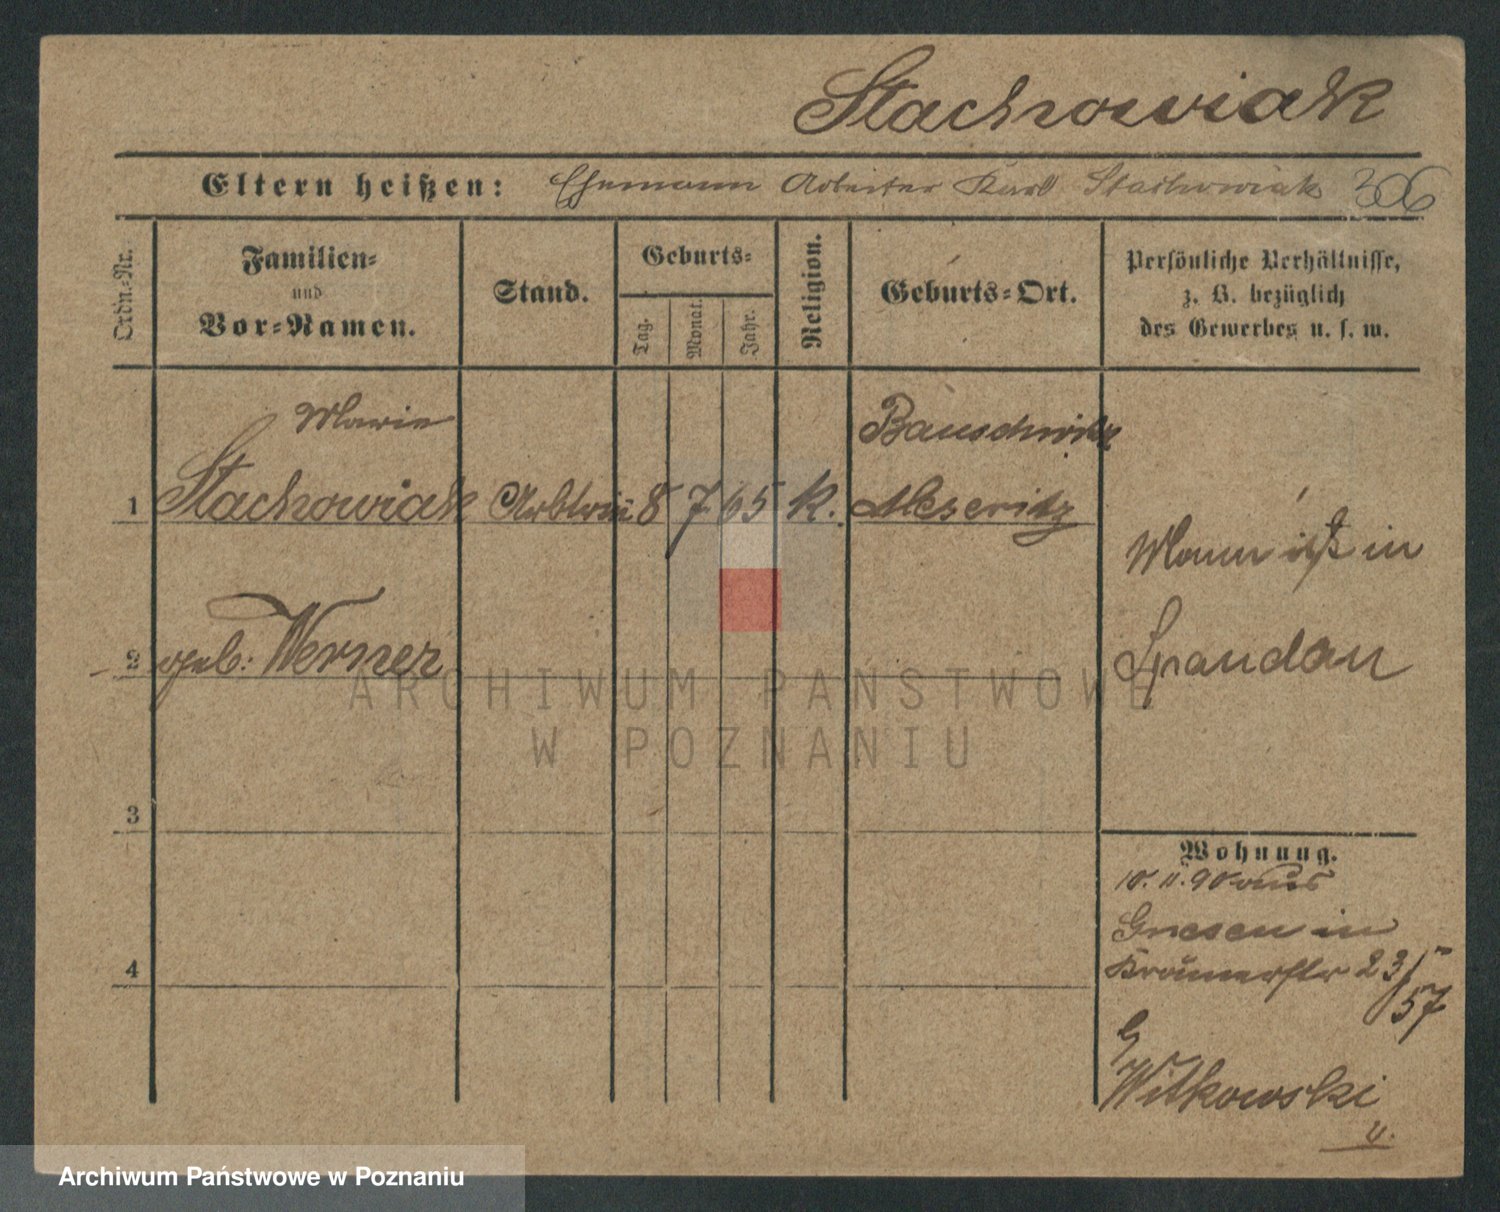 Stachowiak
Eltern heißen: Ehemann Arbeiter Karl Stachowiak 306
Ordn.-Nr.
Familien-
und
Vor-Namen.
Stand.
Geburts-
Tag.
Monat.
Jahr.
Religion.
Geburts-Ort.
Persönliche Verhältnisse,
z. B. bezüglich
des Gewerbes u. s. w.
Marie
Bauschwitz
1 Stachowiak Arbtrin 8 7 65 k. Meseritz
Mann ist in
2 geb: Werner
Spandau
ARCHIWUM PAŃSTWOWE
W POZNANIU
3
Wohnung.
10. 11. 90 aus
Gnesen in
4
Krämerstr 23/
57
b/
Witkowski
Archiwum Państwowe w Poznaniu